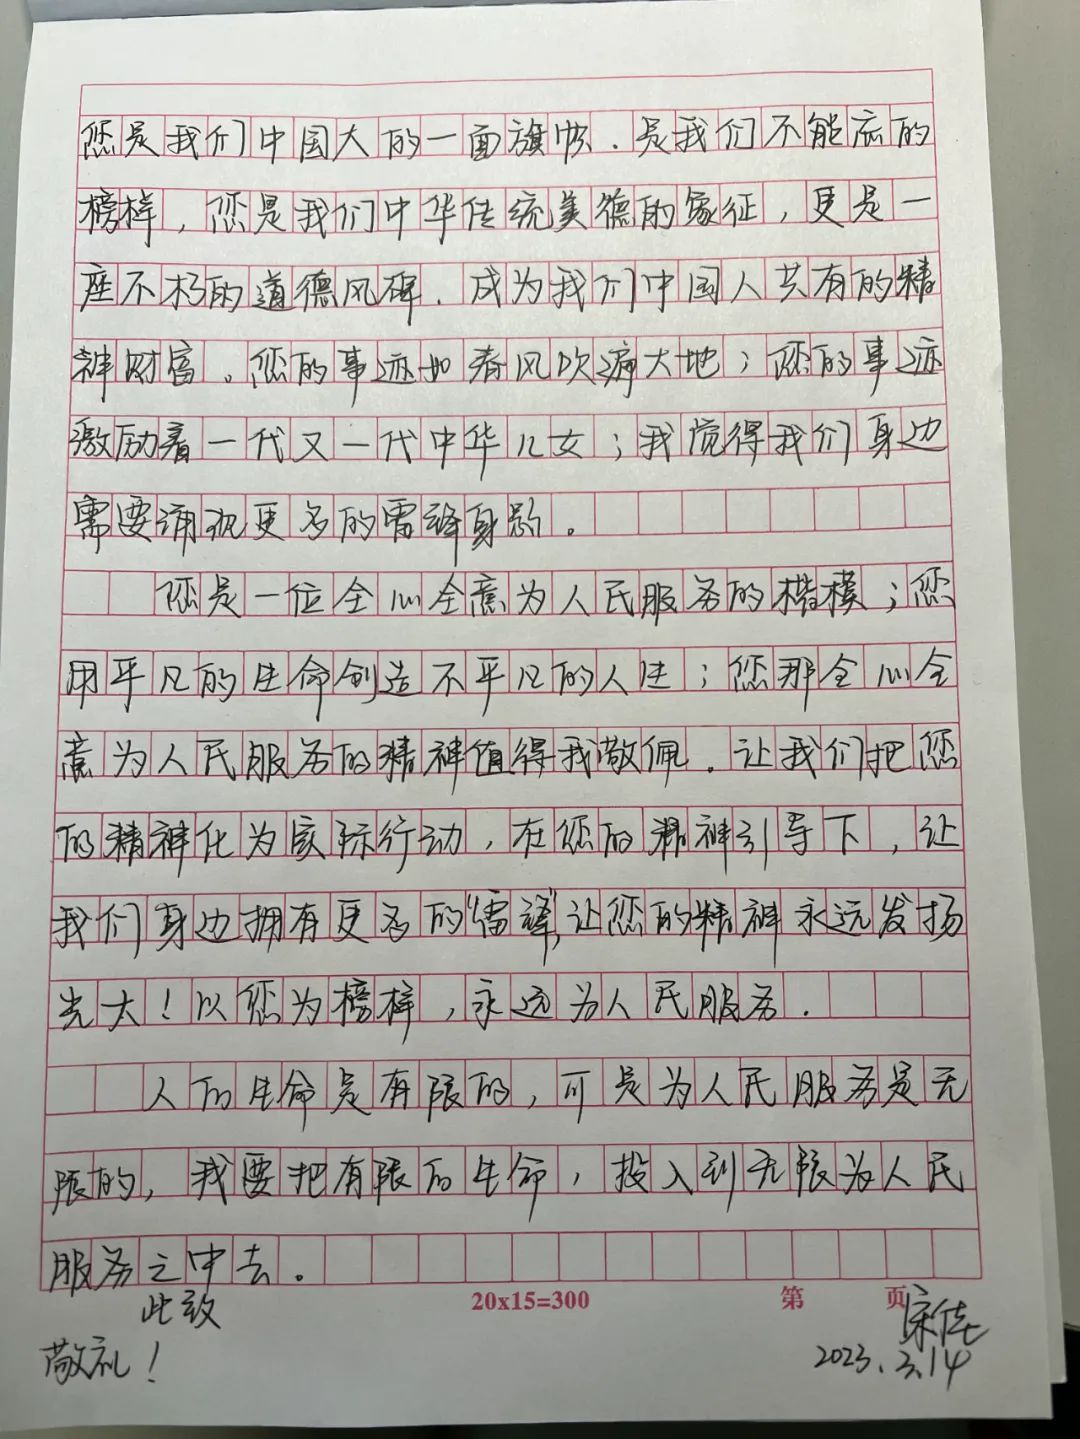 您是我们中国大的一面旗帜.是我们不能忘的
榜样,您是我们中华传统美德的象征,更是一
座不朽的道德风碑.成为我们中国人共有的精
神财富。您的事迹如春风吹遍大地;您的事迹
激励着一代又一代中华儿女;我觉得我们身边
需要涌现更多的雷锋身影。
您是一位全心全意为人民服务的楷模;您
用平凡的生命创造不平凡的人生;您那全心全
意为人民服务的精神值得我敬佩.让我们把您
的精神化为实际行动,在您的精神引导下,让
我们身边拥有更多的"雷锋",让您的精神永远发扬
光大!以您为榜样,永远为人民服务.
人的生命是有限的,可是为人民服务是无
限的,我要把有限的生命,投入到无限为人民
服务之中去。
20x15=300 第 页
此致
敬礼!
宋佳
2023.3.14